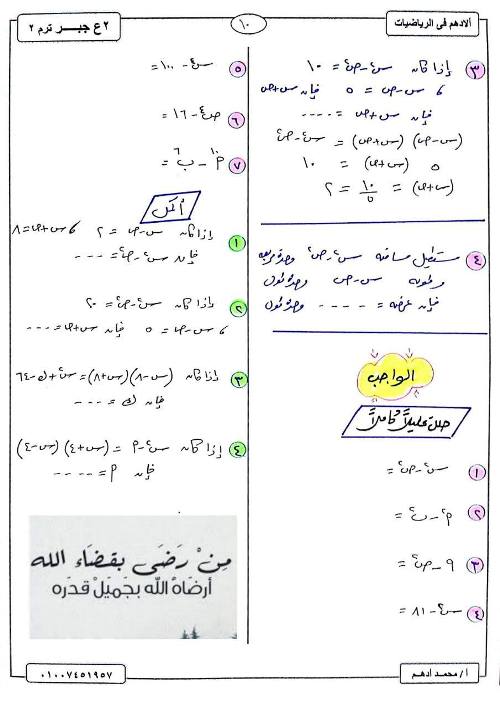 الادهم فى الرياضيات
١٠
٢ع جبر ترم ٢
٣ إذا كان س٢ - ص٢ = ١٠
، س - ص = ٥ فإن س + ص
فإن س + ص = ....
(س - ص) (س + ص) = س٢ - ص٢
٥ (س + ص) = ١٠
(س + ص) = ١٠/٥ = ٢
٤ مستطيل مساحته س٢ - ص٢ وحدة مربعة
وطوله س - ص وحدة طول
فإن عرضه = .... وحدة طول
الواجب
حلل تحليلاً كاملاً
١ س٢ - ص٢ =
٢ ٢م - ٢ب =
٣ ٩ - ص٢ =
٤ س٢ - ٨١ =
٥ س٢ - ١٠٠ =
٦ ص٢ - ١٦ =
٧ م١٠ - ب٦ =
أكمل
١ إذا كان س - ص = ٢ ، س + ص = ٨
فإن س٢ - ص٢ = ...
٢ إذا كان س٢ - ص٢ = ٢٠
، س - ص = ٥ فإن س + ص = ...
٣ إذا كان (س - ٨) (س + ٨) = س٢ + ك - ٦٤
فإن ك = ...
٤ إذا كان س٢ - م = (س + ٤) (س - ٤)
فإن م = ....
مِنْ رَضَى بقضَاء الله
أرضَاهُ الله بجَميَلْ قدَره
أ/ محمد أدهم
٠١٠٠٧٤٥١٩٥٧